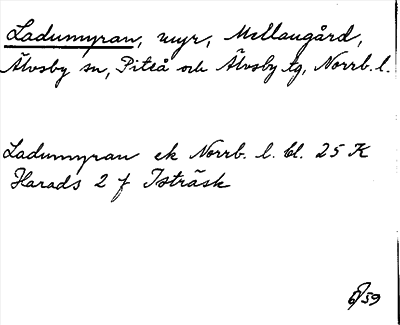 Ladumyran, myr, Mellangård,
Älvsby sn, Piteå och Älvsby tg, Norrb. l.
Ladumyran ek Norrb. l. bl. 25 K
Harads 2 f Isträsk
6/59